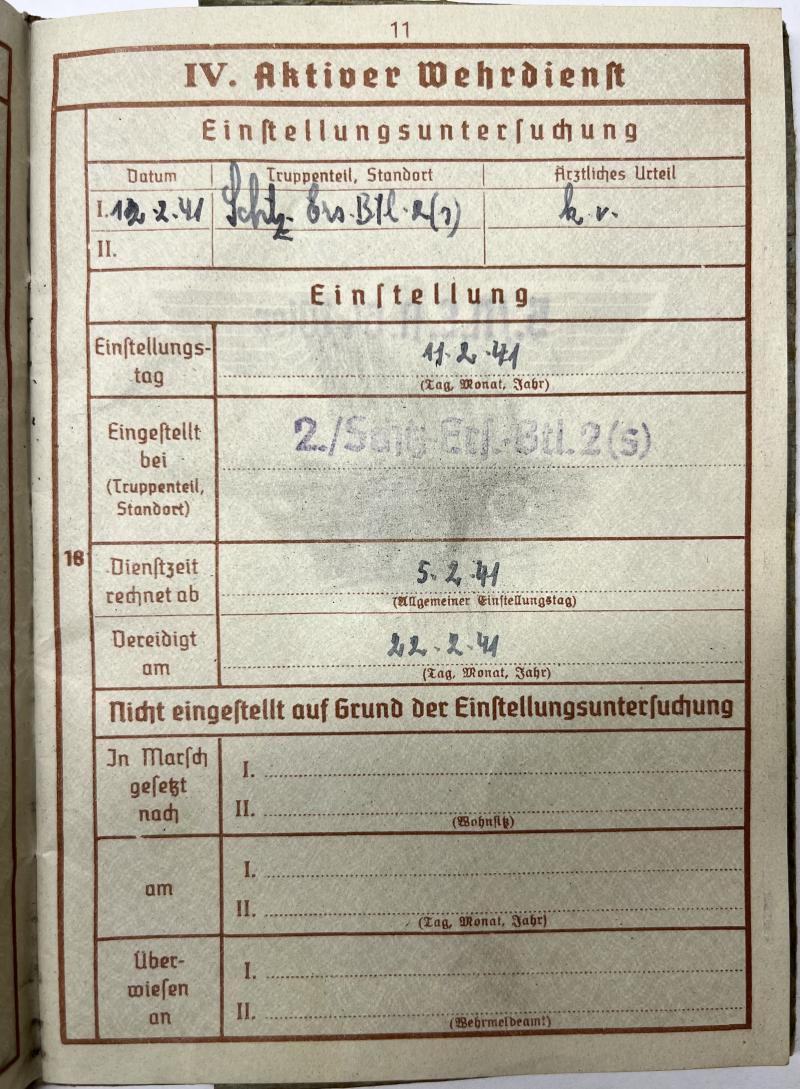 11
IV. Aktiver Wehrdienst
Einstellungsuntersuchung
Datum Truppenteil, Standort Ärztliches Urteil
I. 12.2.41 Schtz. Ers. Btl. 2(s) k. v.
II.
Einstellung
Einstellungs-
tag
11.2.41
(Tag, Monat, Jahr)
Eingestellt
bei
(Truppenteil,
Standort)
2./Schtz Ers.-Btl. 2(s)
18
Dienstzeit
rechnet ab
5.2.41
(Allgemeiner Einstellungstag)
Vereidigt
am
22.2.41
(Tag, Monat, Jahr)
Nicht eingestellt auf Grund der Einstellungsuntersuchung
In Marsch
gesetzt
nach
I.
II.
(Wohnsitz)
am
I.
II.
(Tag, Monat, Jahr)
Über-
wiesen
an
I.
II.
(Wehrmeldeamt)